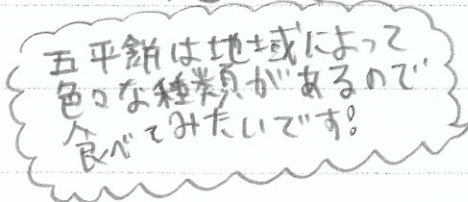 五平餅は地域によって
色々な種類があるので
食べてみたいです!